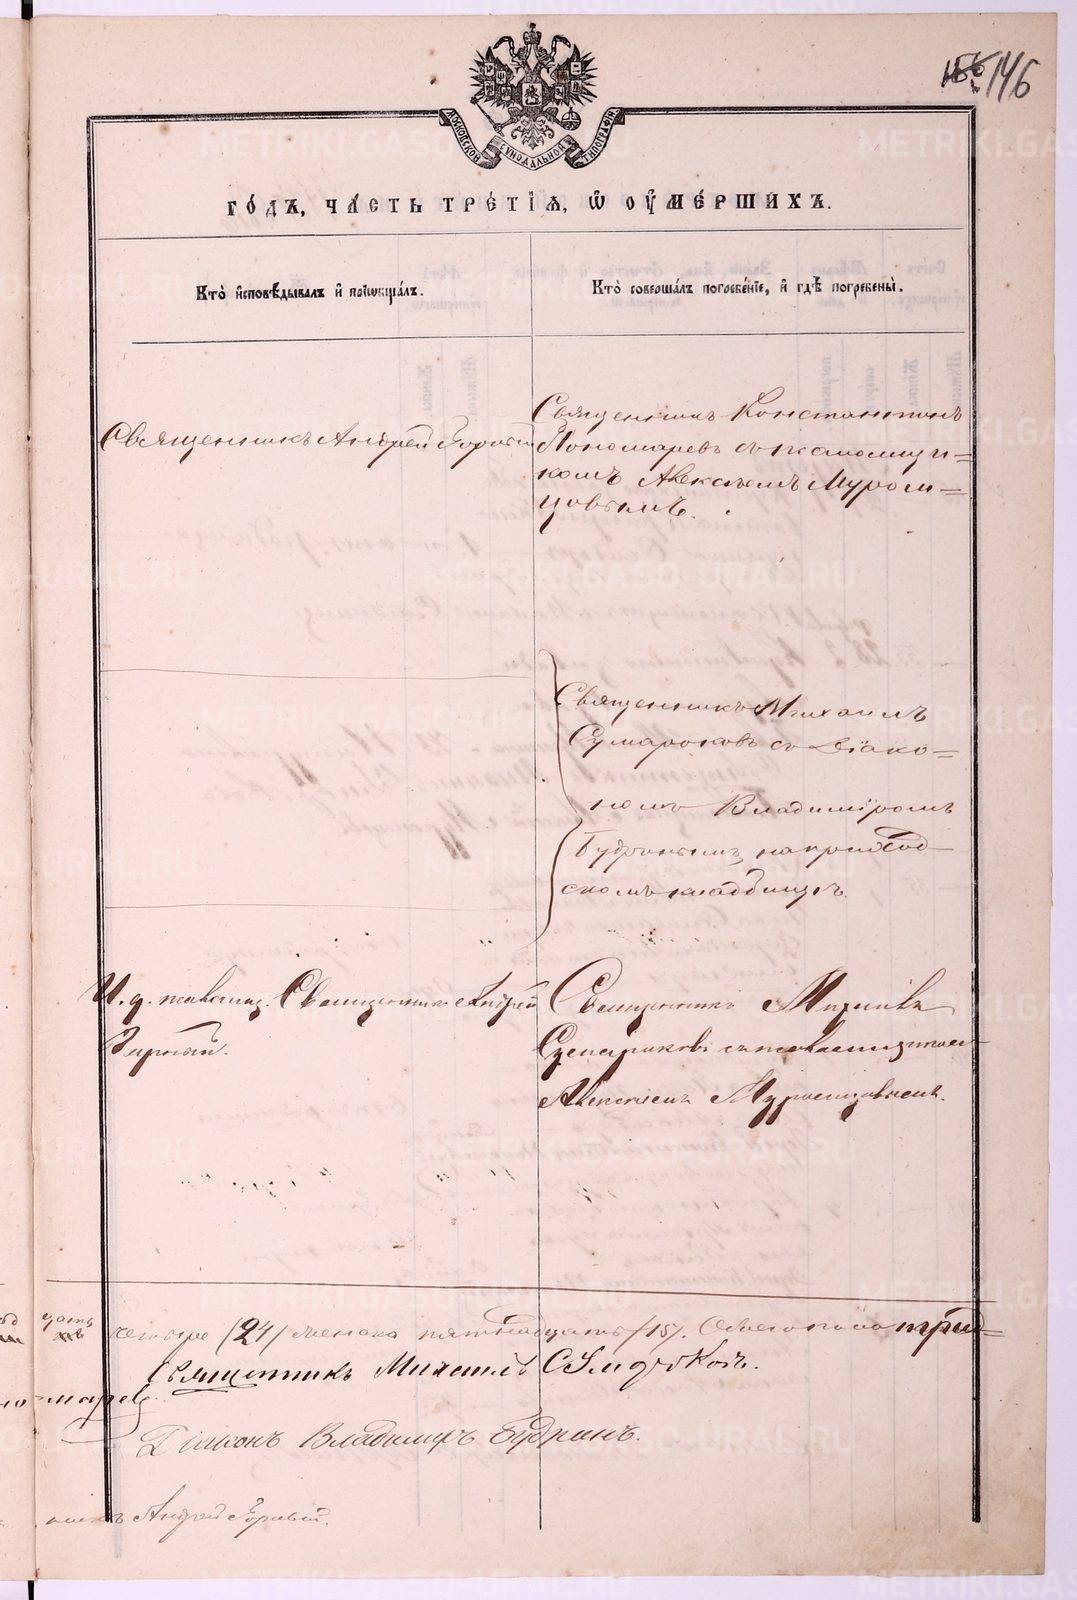 146
МОСКОВСКОЙ СѴНОДАЛЬНОЙ ТИПОГРАФІИ
ГО́ДЪ, ЧА́СТЬ ТРЕ́ТІѦ, Ѡ҆ ОУ҆МЕ́РШИХЪ.
Кто̀ и҆сповѣ́дывалъ и҆ прїѡбща́лъ.
Кто̀ соверша́лъ погребе́нїе, и҆ гдѣ̀ погребены̀.
Священникъ Андрей Горный
Священникъ Константинъ
Пономаревъ съ псаломщи=
комъ Алексѣемъ Муром=
цовымъ.
Священникъ Михаилъ
Сумароковъ съ Діако=
номъ Владиміромъ
Будринымъ, на приход-
скомъ кладбищѣ.
И. д. Священникъ Андрей
Горный.
Священникъ Михаилъ
Сумароковъ съ псаломщикомъ
Алексѣемъ Муромцовымъ.
четыре /24/ женска пятнадцать /15/. Обоего пола трид=
цать
Священникъ Михаилъ Сумароковъ.
марев
Діаконъ Владимиръ Будринъ.
Андрей Горный.
METRIKI.GASO-URAL.RU